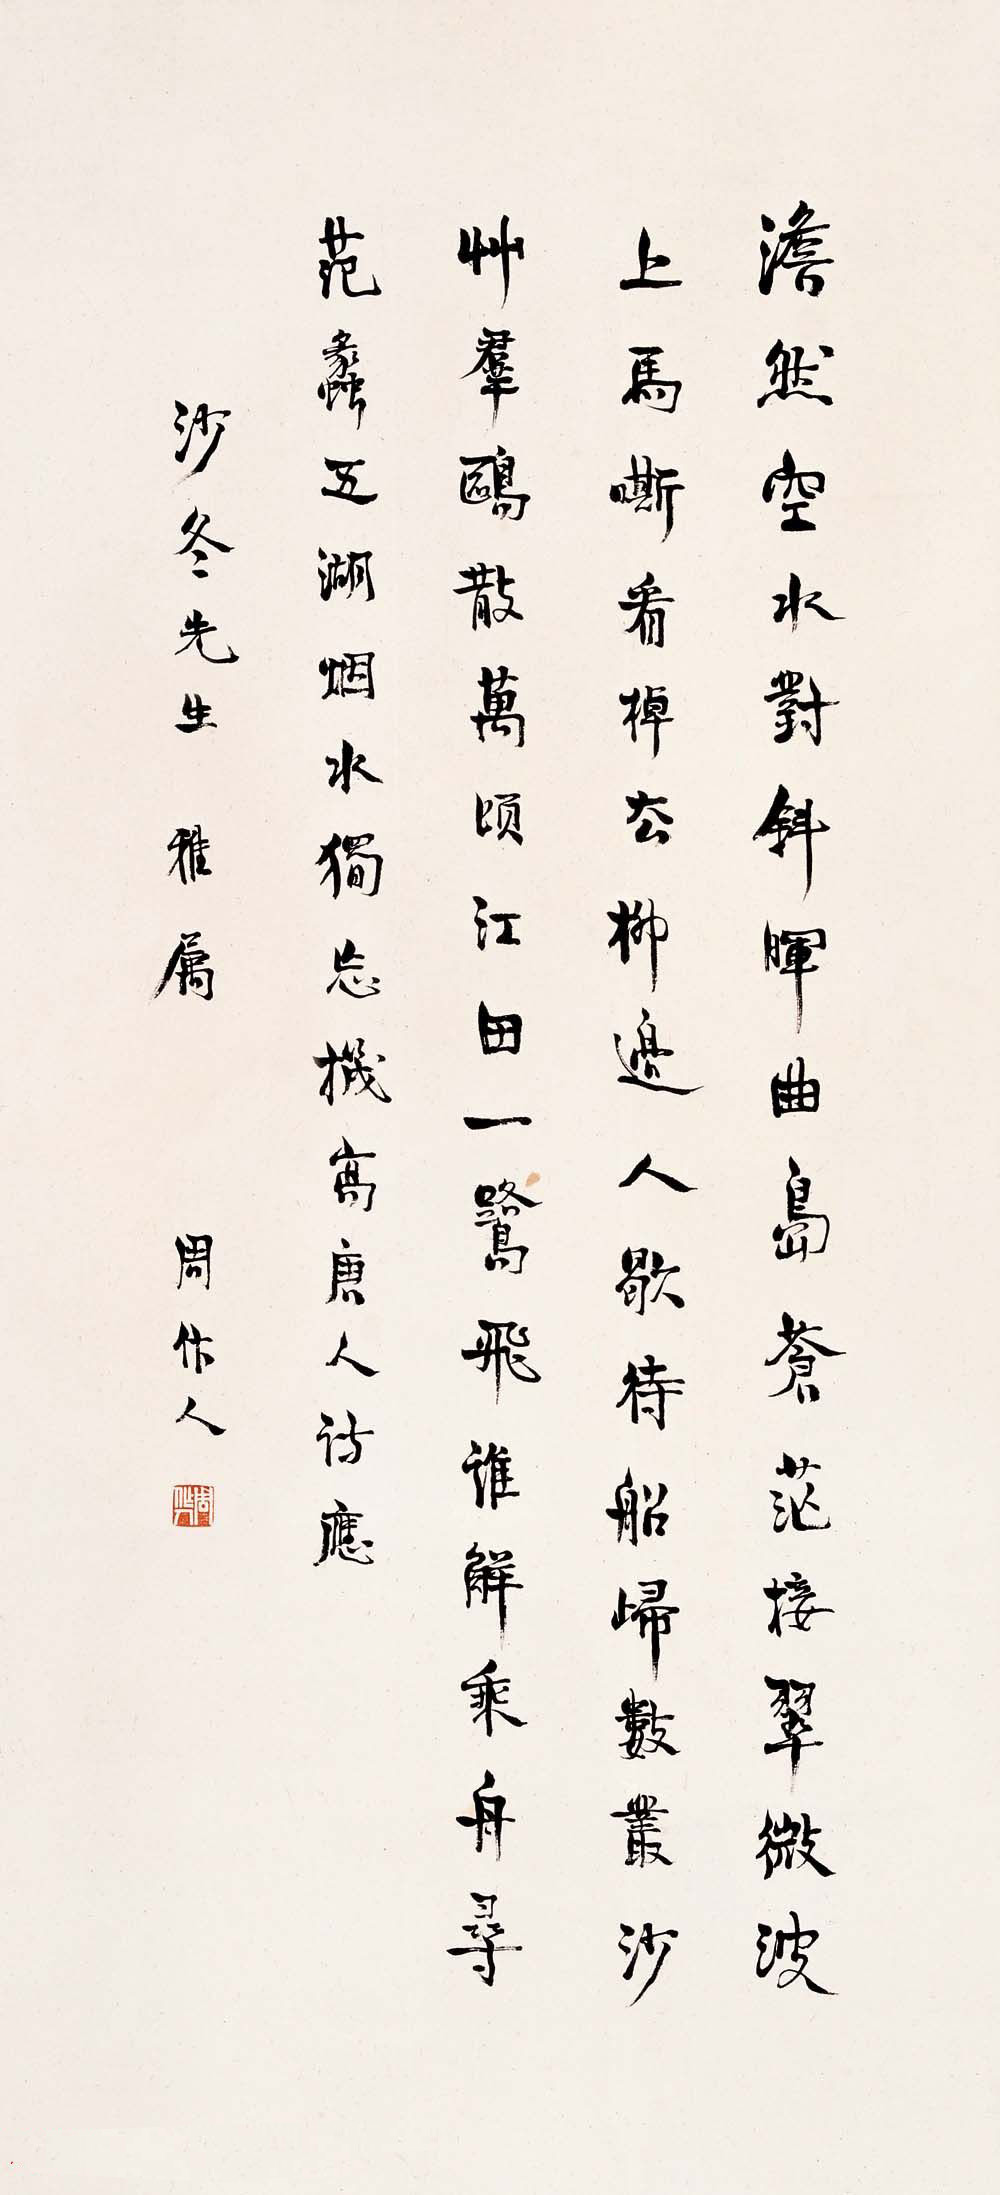 澹然空水對斜暉曲島蒼茫接翠微波
上馬嘶看棹去柳邊人歇待船歸數叢沙
艸羣鷗散萬頃江田一鷺飛誰解乘舟尋
范蠡五湖烟水獨忘機 高唐人詩應
沙冬先生 雅屬 周作人
周作人